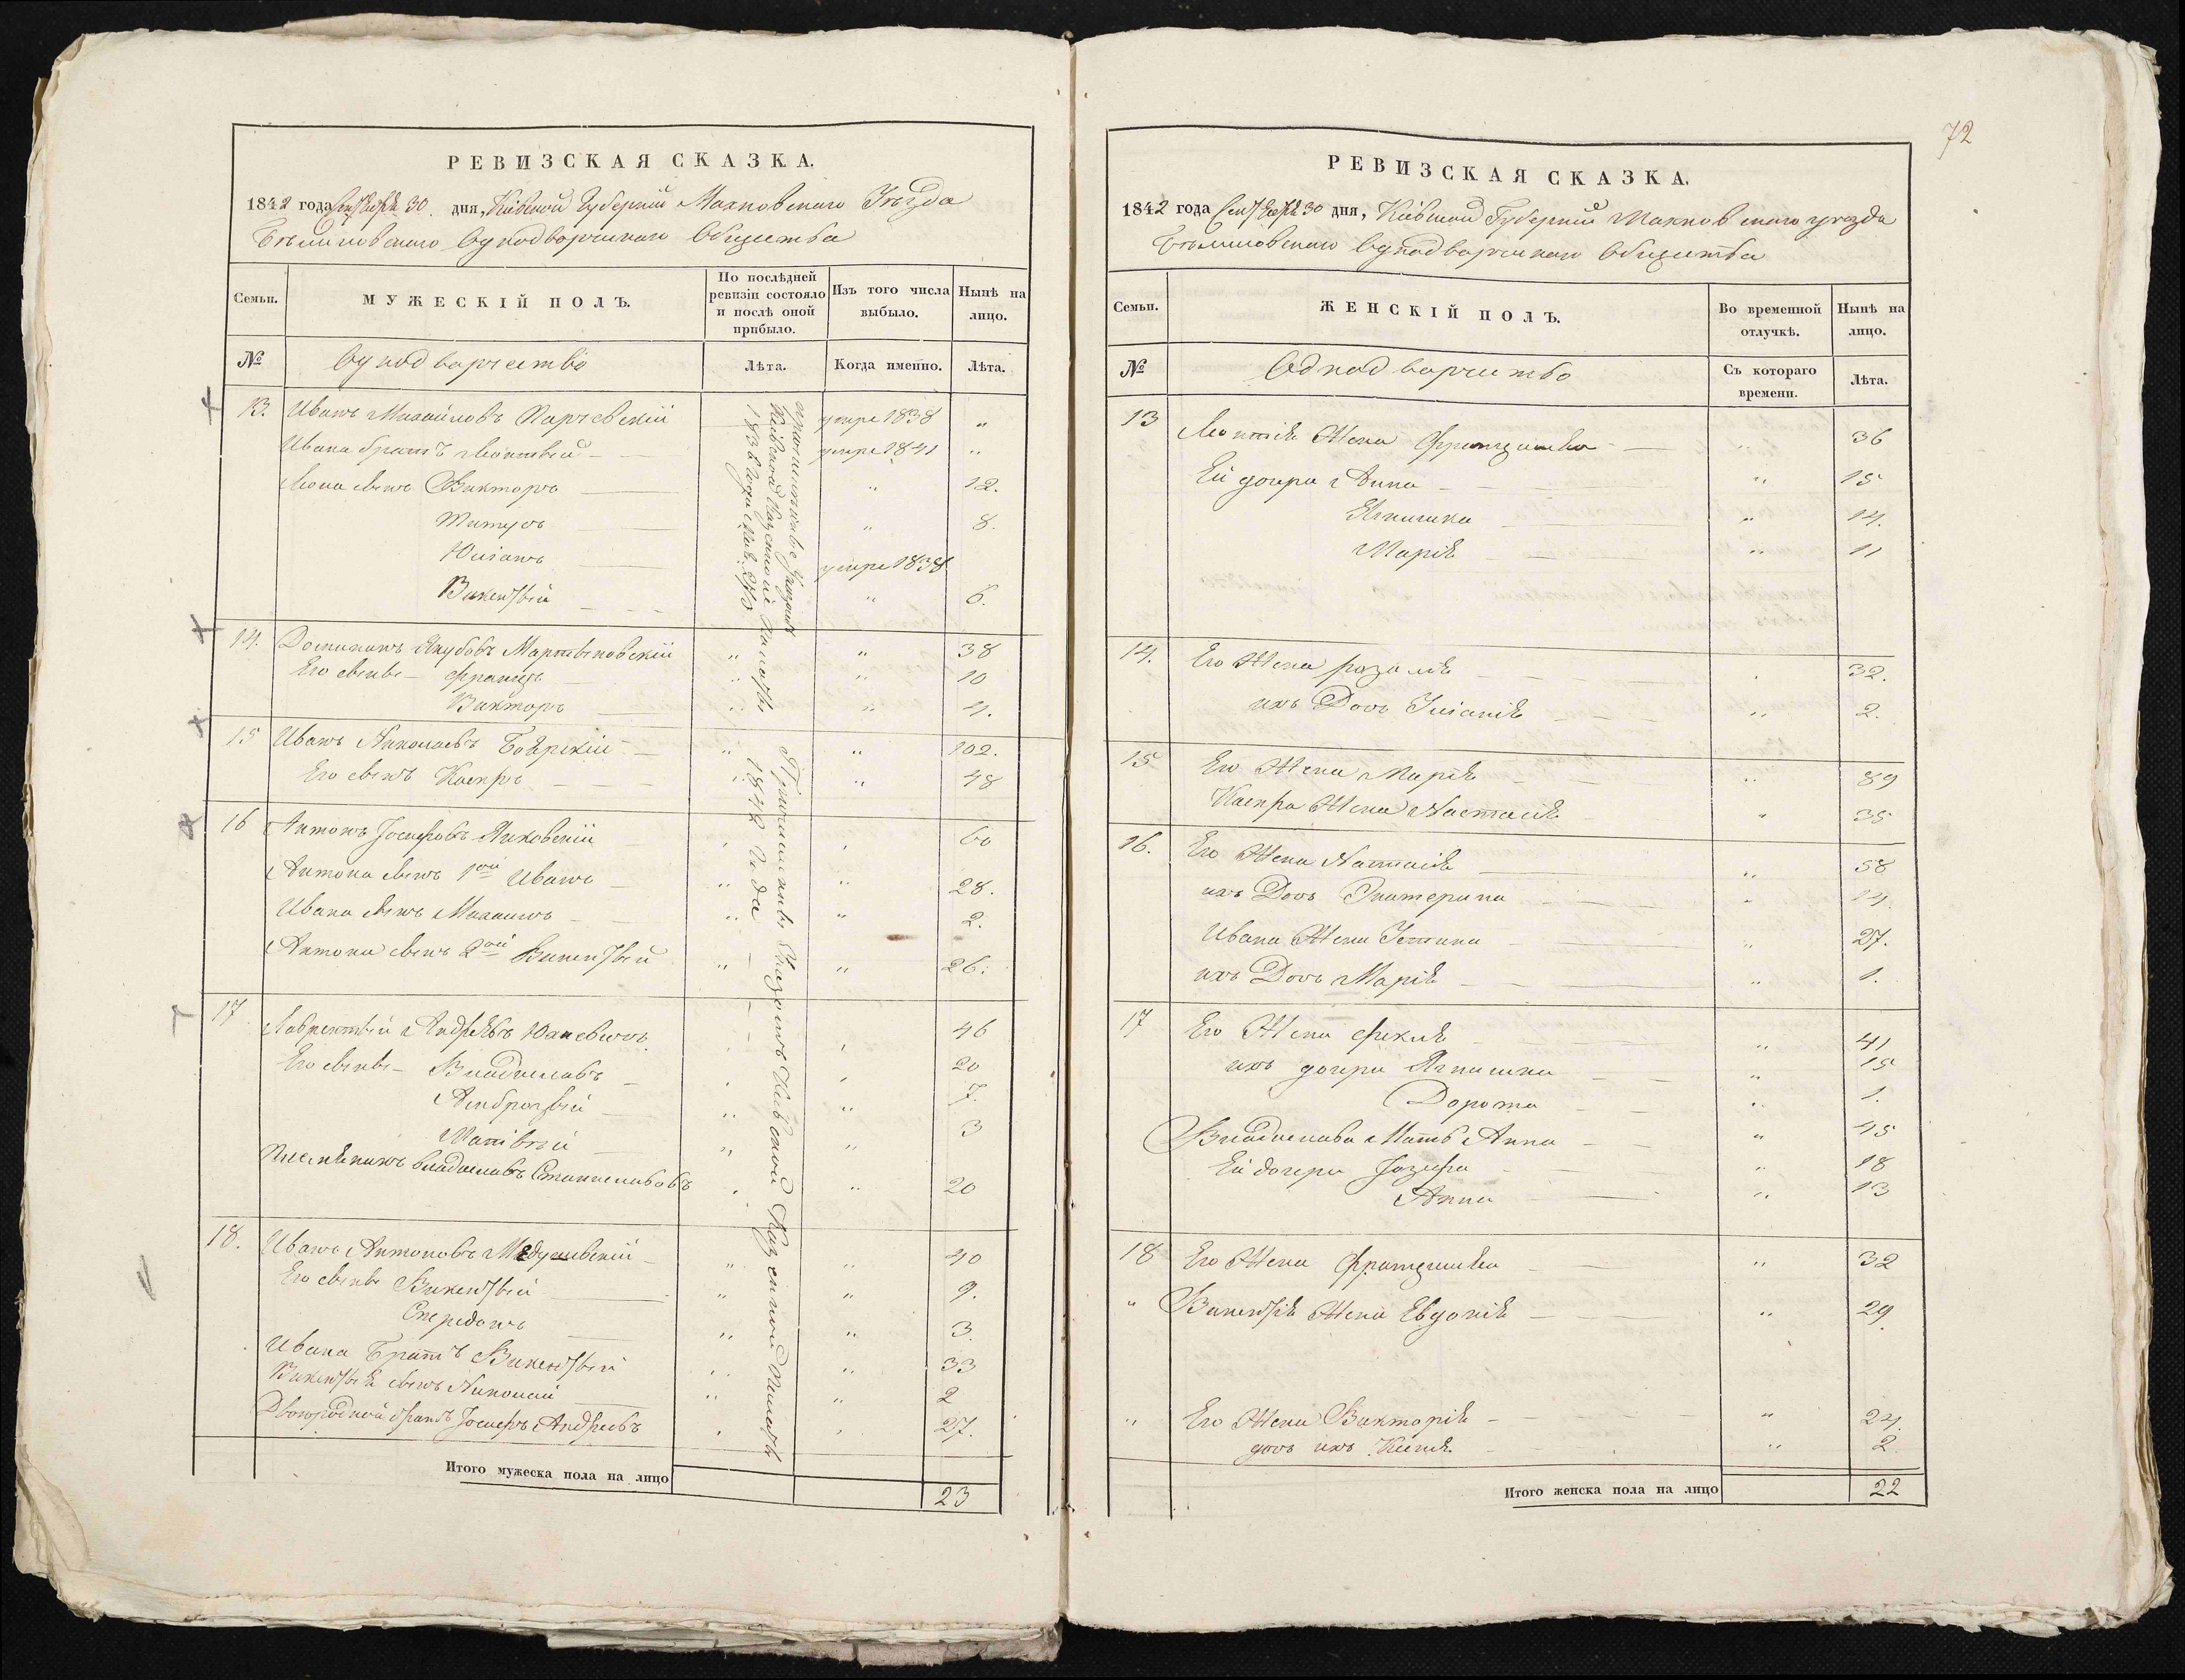 РЕВИЗСКАЯ СКАЗКА.
1842 года Сентября 30 дня, Кіевской Губерніи Махновскаго Уѣзда
Однодворческаго Общества
Семьи.
МУЖЕСКІЙ ПОЛЪ.
По послѣдней ревизіи состояло и послѣ оной прибыло.
Изъ того числа выбыло.
Нынѣ на лицо.
№
Однодворчество
Лѣта.
Когда именно.
Лѣта.
13. Иванъ Михайловъ Карчевскій умре 1838 „
Ивана братъ Леонтій умре 1841 „
сынъ Викторъ „ 12.
Титусъ „ 8.
Юліанъ умре 1838
Викентій „ 6.
причислены Указомъ
Кіевской Казенной Палаты
14. Доминикъ Якубовъ Мартыновскій „ „ 38
Его сыны Францъ „ „ 10
Викторъ „ „ 4.
15 Иванъ Николаевъ Боярскій „ „ 102.
Его сынъ Каспръ „ „ 48
16 Антонъ Іосифовъ Янковскій „ „ 60
Антона сынъ 1ой Иванъ „ „ 28.
Ивана сынъ Михаилъ „ „ 2.
Антона сынъ 2ой Викентій „ „ 26.
17 Лаврентій Андреевъ Юцевичъ „ „ 46
Его сыны Владиславъ „ „ 20
Амброзій „ „ 7.
Матвій „ „ 3
Племянникъ Владиславъ Станиславовъ „ „ 20
18. Иванъ Антоновъ „ „ 40
Его сыны Викентій „ „ 9.
Спиридонъ „ „ 3.
Ивана Братъ Викентій „ „ 33
Викентія сынъ Николай „ „ 2
Двоюродной братъ Іосифъ Андреевъ „ „ 27.
Причислены Указомъ Кіевской Казенной Палаты
1842 года
Итого мужеска пола на лицо 23
72
РЕВИЗСКАЯ СКАЗКА.
1842 года Сентября 30 дня, Кіевской Губерніи Махновскаго уѣзда
Однодворческаго Общества
Семьи.
ЖЕНСКІЙ ПОЛЪ.
Во временной отлучкѣ.
Нынѣ на лицо.
№
Однодворчество
Съ котораго времени.
Лѣта.
13 Леонтія Жена Францишка „ 36
Ей дочери Анна „ 15
Ягнишка „ 14.
Марія „ 11
14. Его Жена Розалія „ 32.
ихъ Дочь Юліанія „ 2.
15 Его Жена Марія „ 89
Каспра Жена Настасія „ 35
16. Его Жена Настасія „ 58
ихъ Дочь Екатерина „ 14.
Ивана Жена Юстина „ 27.
ихъ Дочь Марія „ 1.
17 Его Жена Фекля „ 41
ихъ дочери Ягнишка „ 15
Дорота „ 1.
Владислава Мать Анна „ 45
Ей дочери Іозефа „ 18
Анна „ 13
18 Его Жена Францишка „ 32
„ Викентія Жена Евдокія „ 29
„ Его Жена Викторія „ 24.
дочь ихъ „ 2.
Итого женска пола на лицо 22